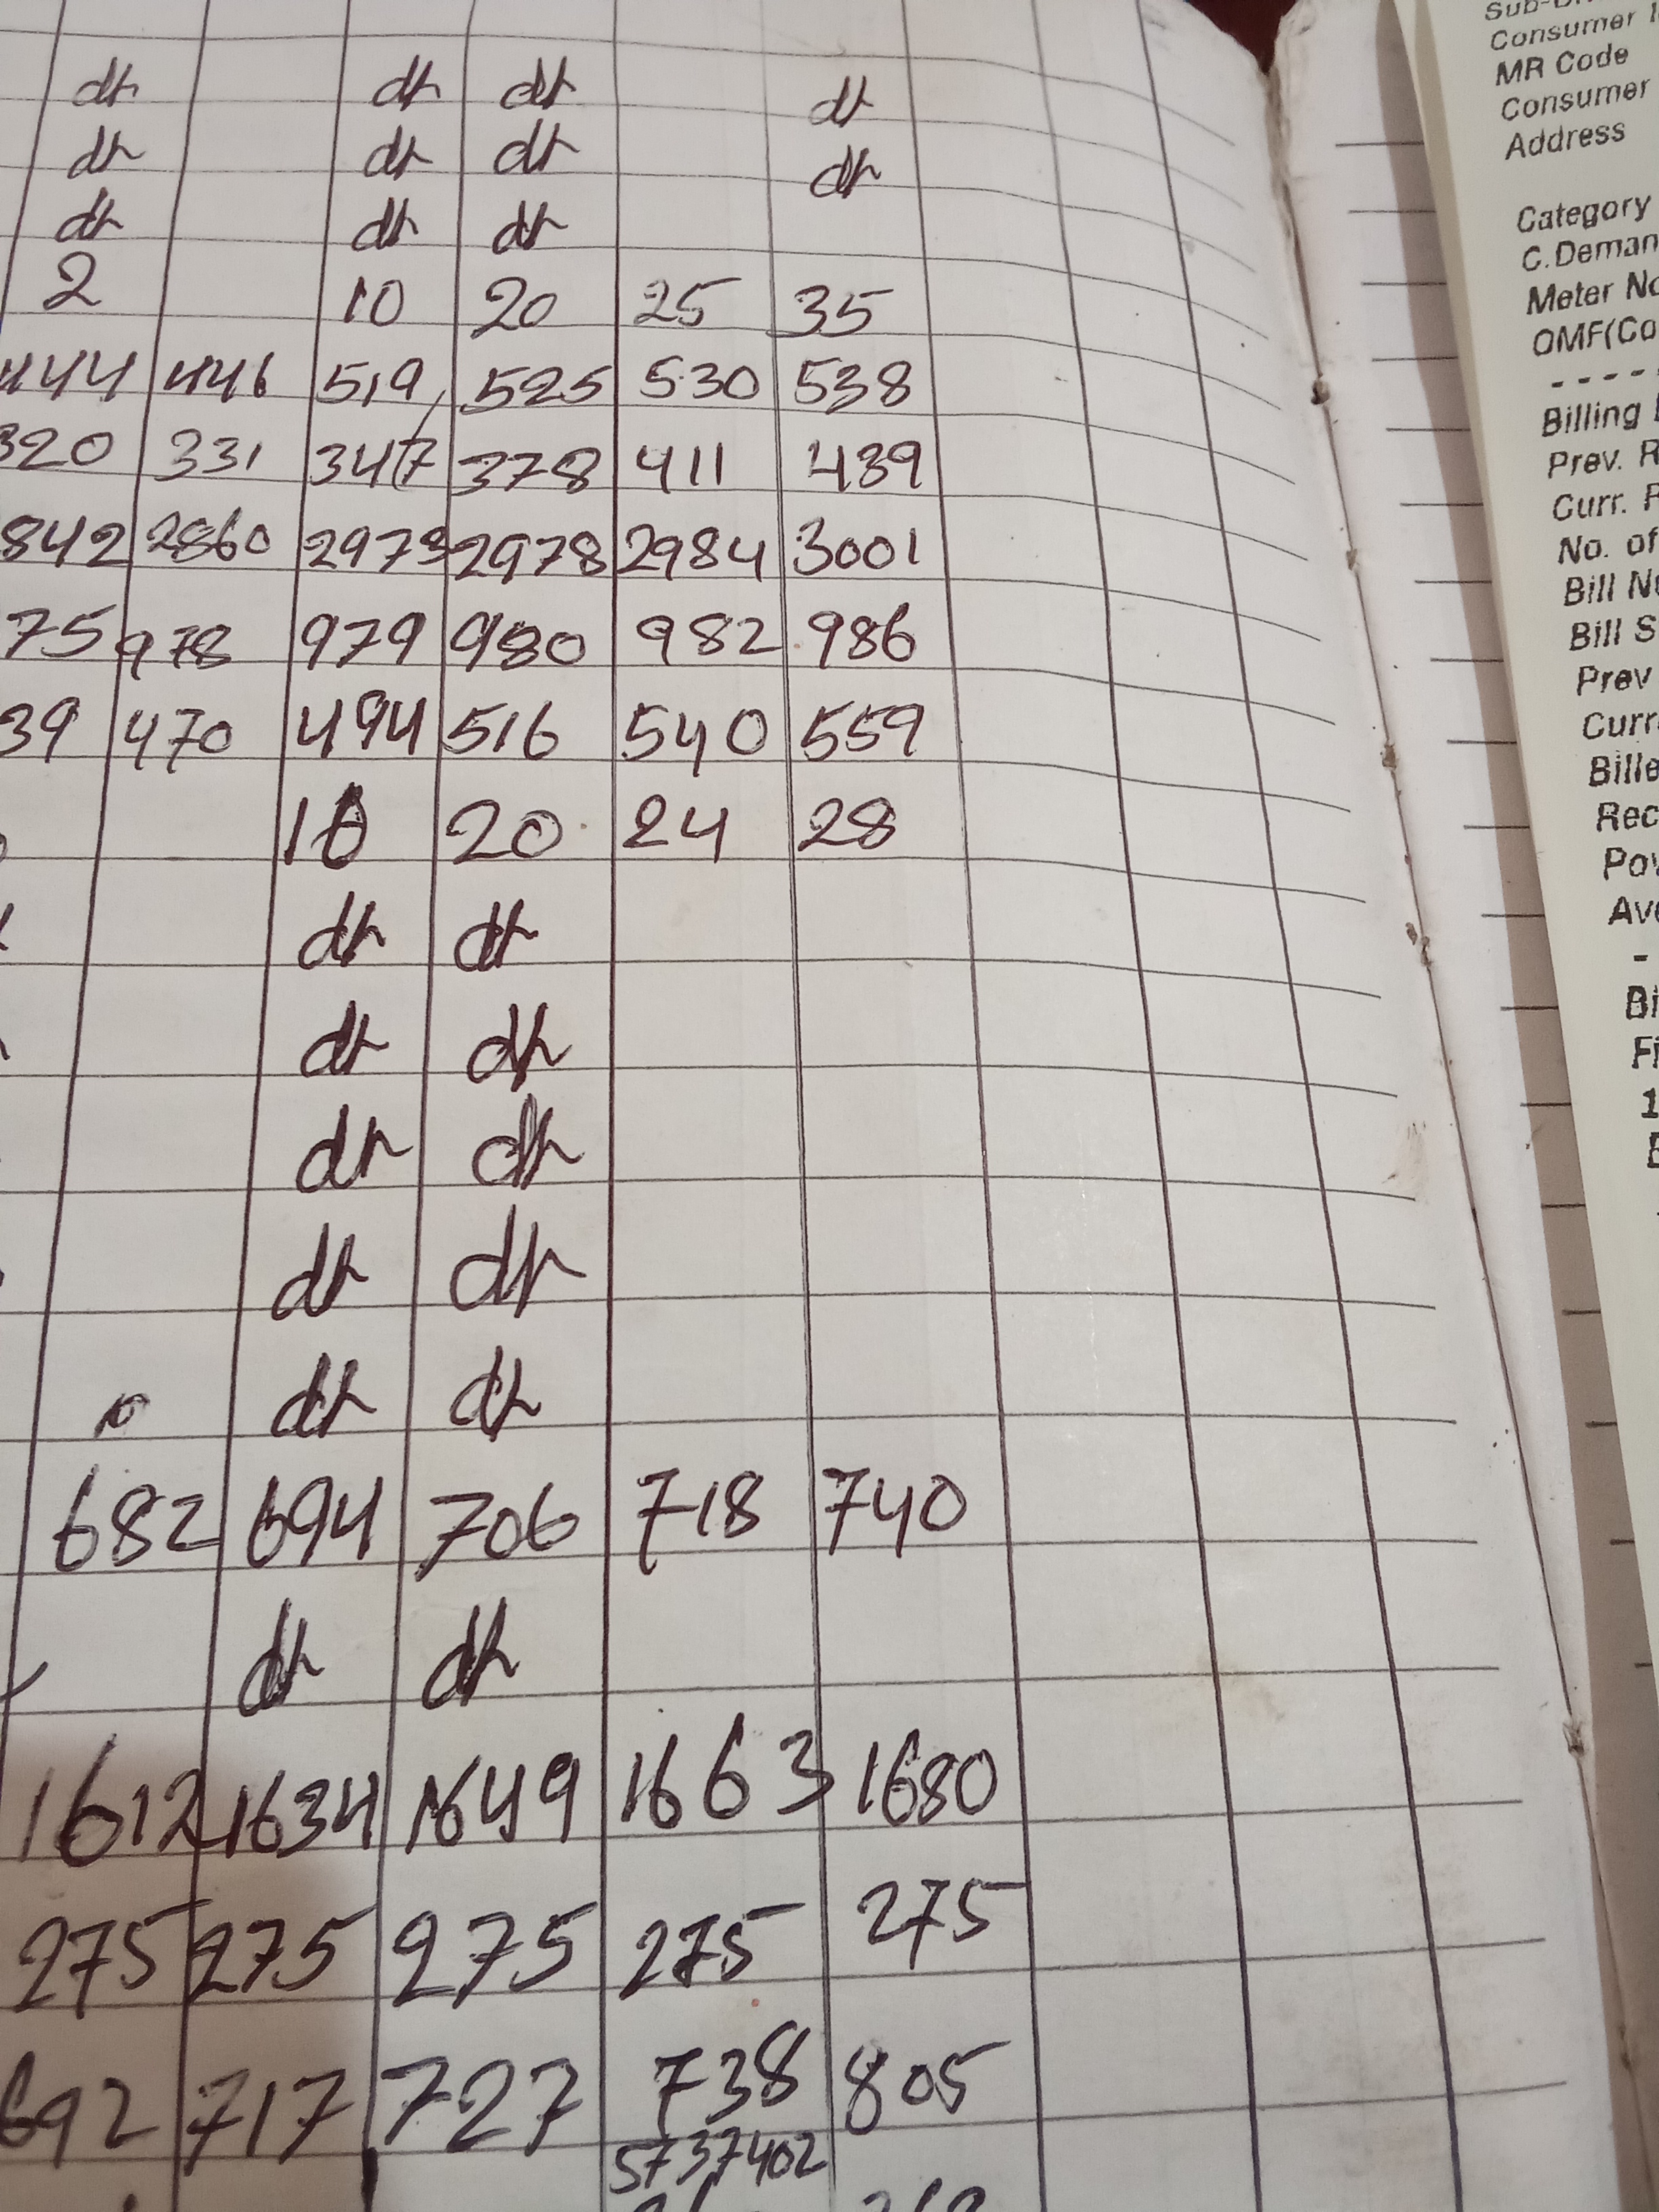 dr dr dr dr
dr dr dr dr
dr dr dr
2 10 20 25 35
444 446 519 525 530 538
320 331 347 378 411 439
842 2860 2973 2978 2984 3001
75 978 979 980 982 986
39 470 494 516 540 559
10 20 24 28
dr dr
dr dr
dr dr
dr dr
dr dr
682 694 706 718 740
dr dr
1612 1634 1649 1663 1680
275 275 275 275 275
692 717 727 738 805
5737402
Consumer
MR Code
Consumer
Address
Category
C.Deman
Meter No
OMF(Co
- - - - -
Billing
Prev. R
Curr. R
No. of
Bill No
Bill S
Prev
Curr
Bille
Rec
Pow
Ave
-
Bi
Fi
1